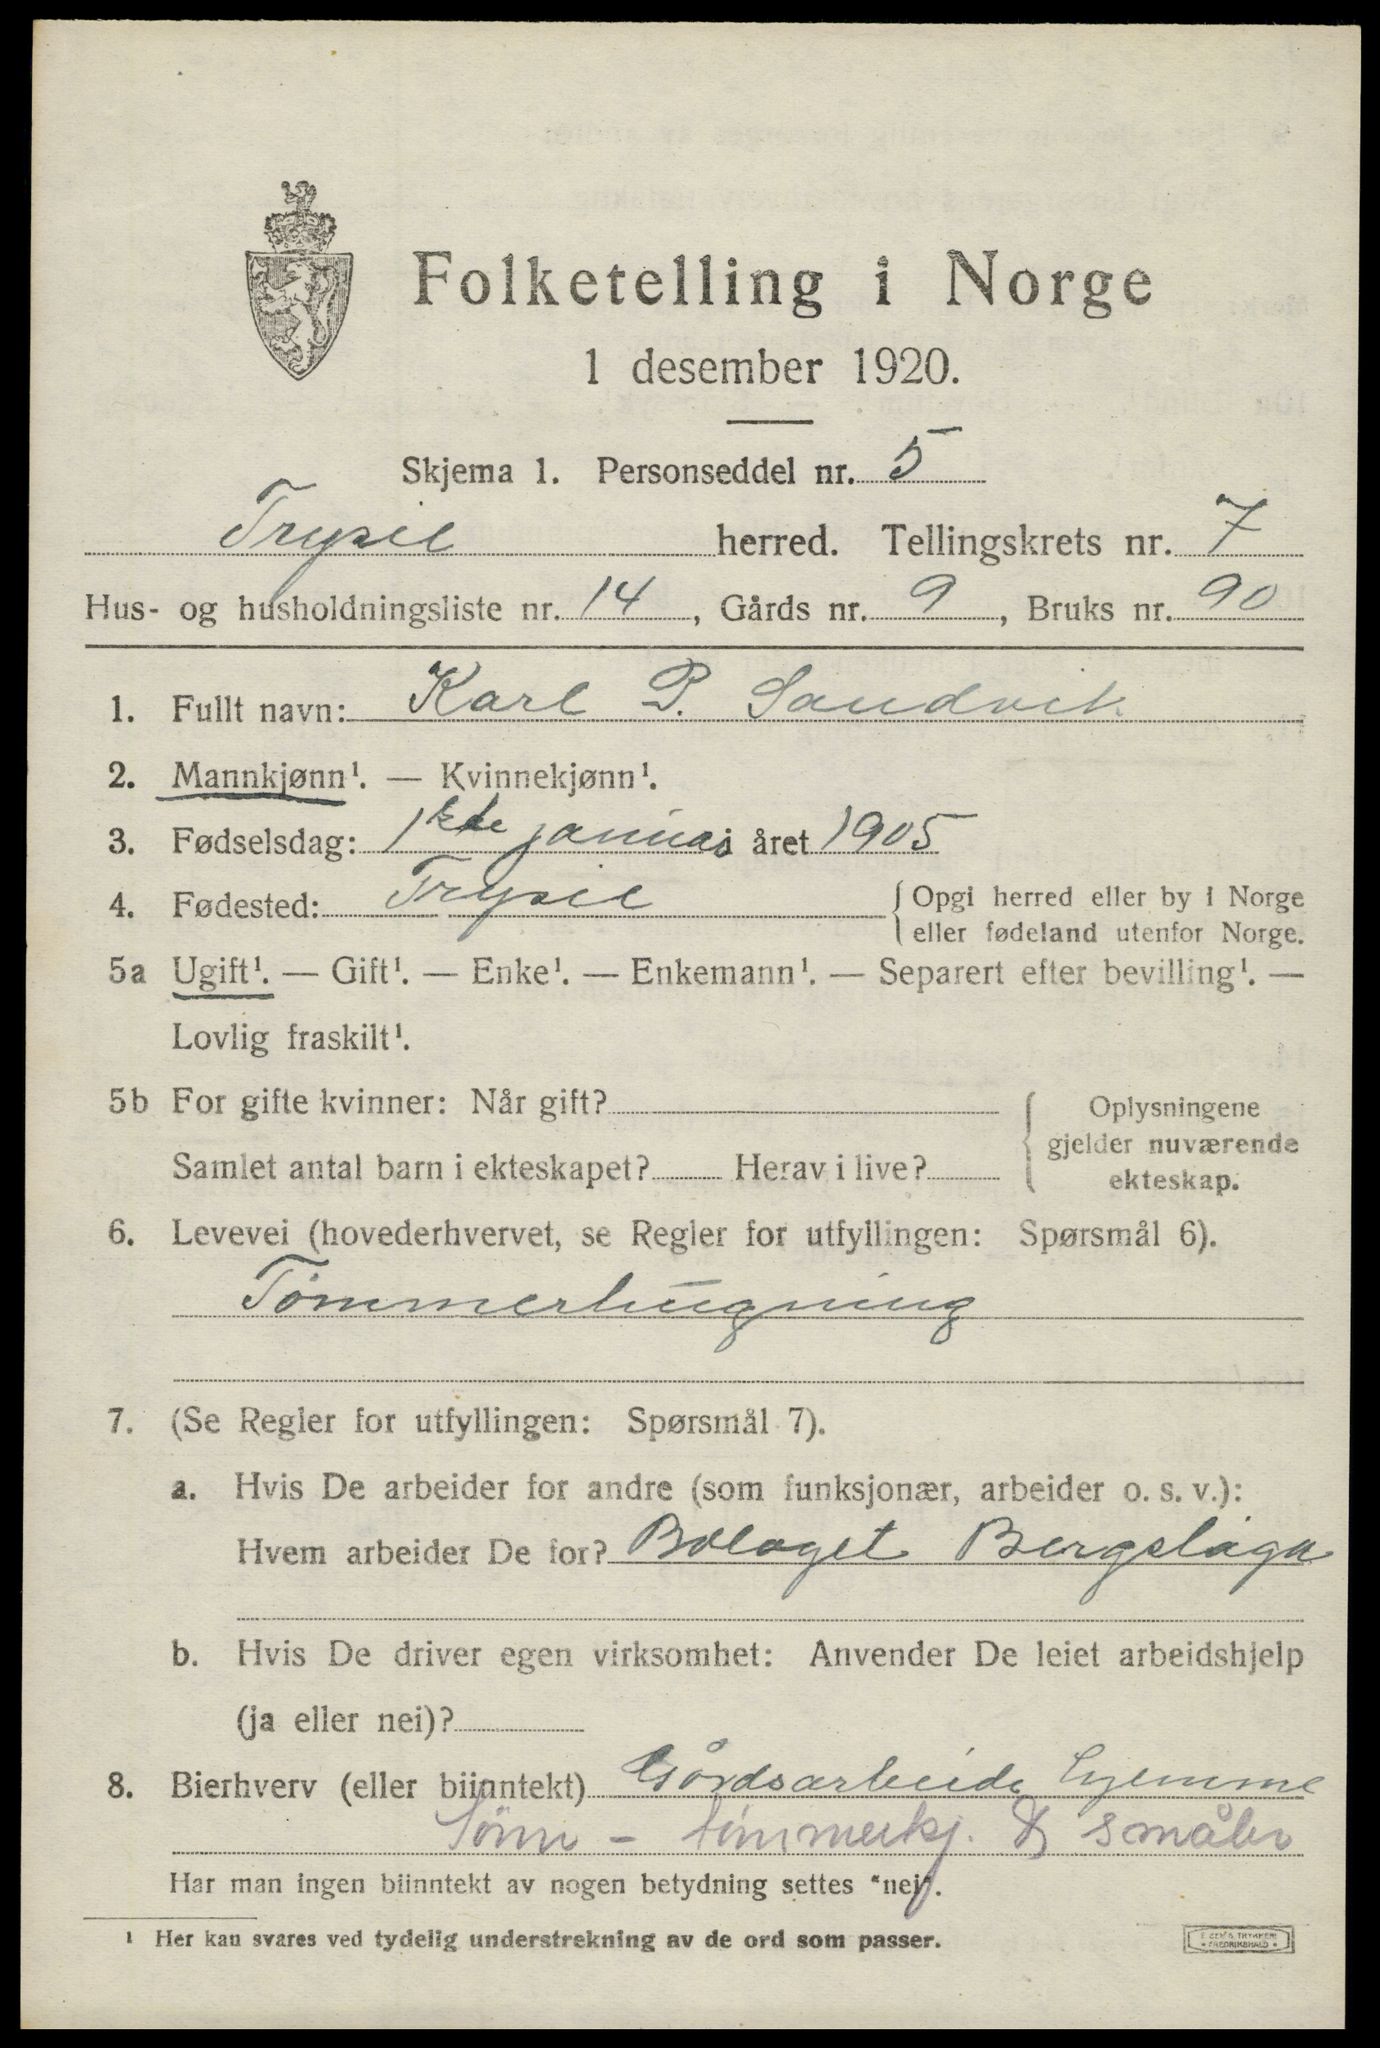 Folketelling i Norge
1 desember 1920.
Skjema 1. Personseddel nr. 5
Trysil herred. Tellingskrets nr. 7
Hus- og husholdningsliste nr. 14, Gårds nr. 9, Bruks nr. 90
1. Fullt navn: Karl P. Sandvik
2. Mannkjønn¹. — Kvinnekjønn¹.
3. Fødselsdag: 1ste januar i året 1905
4. Fødested: Trysil { Opgi herred eller by i Norge
eller fødeland utenfor Norge.
5a Ugift¹. — Gift¹. — Enke¹. — Enkemann¹. — Separert efter bevilling¹. —
Lovlig fraskilt¹.
5b For gifte kvinner: Når gift? { Oplysningene
gjelder nuværende
Samlet antal barn i ekteskapet? Herav i live? ekteskap.
6. Levevei (hovederhvervet, se Regler for utfyllingen: Spørsmål 6).
Tømmerhugning
7. (Se Regler for utfyllingen: Spørsmål 7).
a. Hvis De arbeider for andre (som funksjonær, arbeider o. s. v.):
Hvem arbeider De for? Bolaget Bergslaga
b. Hvis De driver egen virksomhet: Anvender De leiet arbeidshjelp
(ja eller nei)?
8. Bierhverv (eller biinntekt) Gårdsarbeide hjemme
Sönn - tømmerkj. & småbr
Har man ingen biinntekt av nogen betydning settes "nei".
¹ Her kan svares ved tydelig understrekning av de ord som passer.